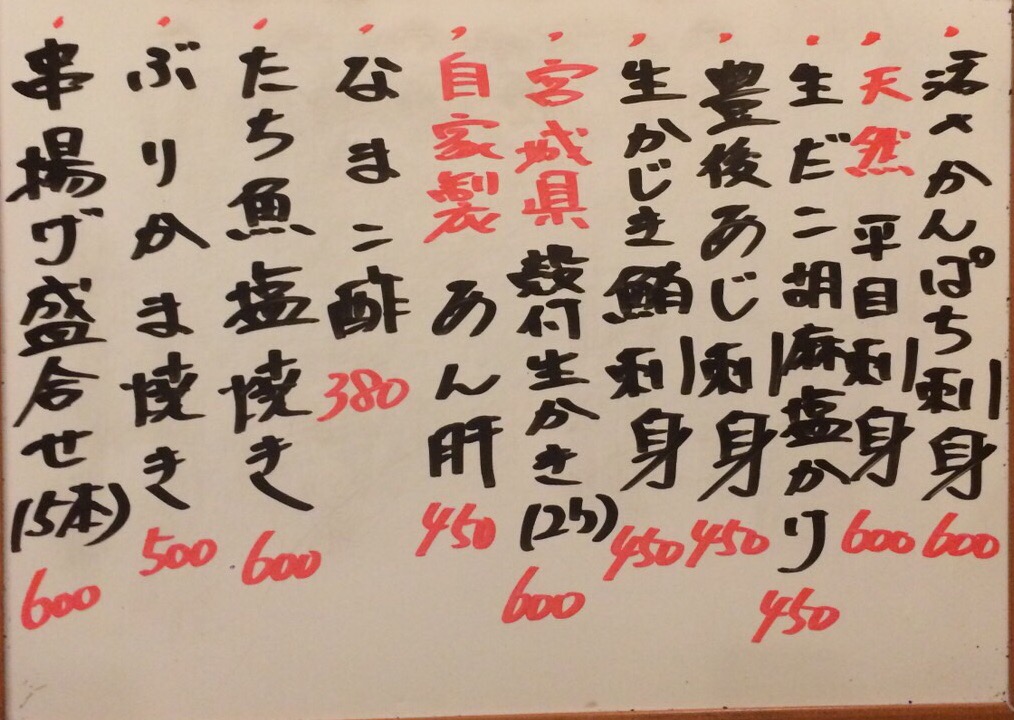 活〆かんぱち刺身 600
天然 平目刺身 600
生だこ胡麻塩かけ 450
豊後あじ刺身 450
生かじき鮪刺身 450
宮城県 殻付生かき(2ケ) 600
自家製 あん肝 450
なまこ酢 380
たち魚塩焼き 600
ぶりかま焼き 500
串揚げ盛合せ(5本) 600